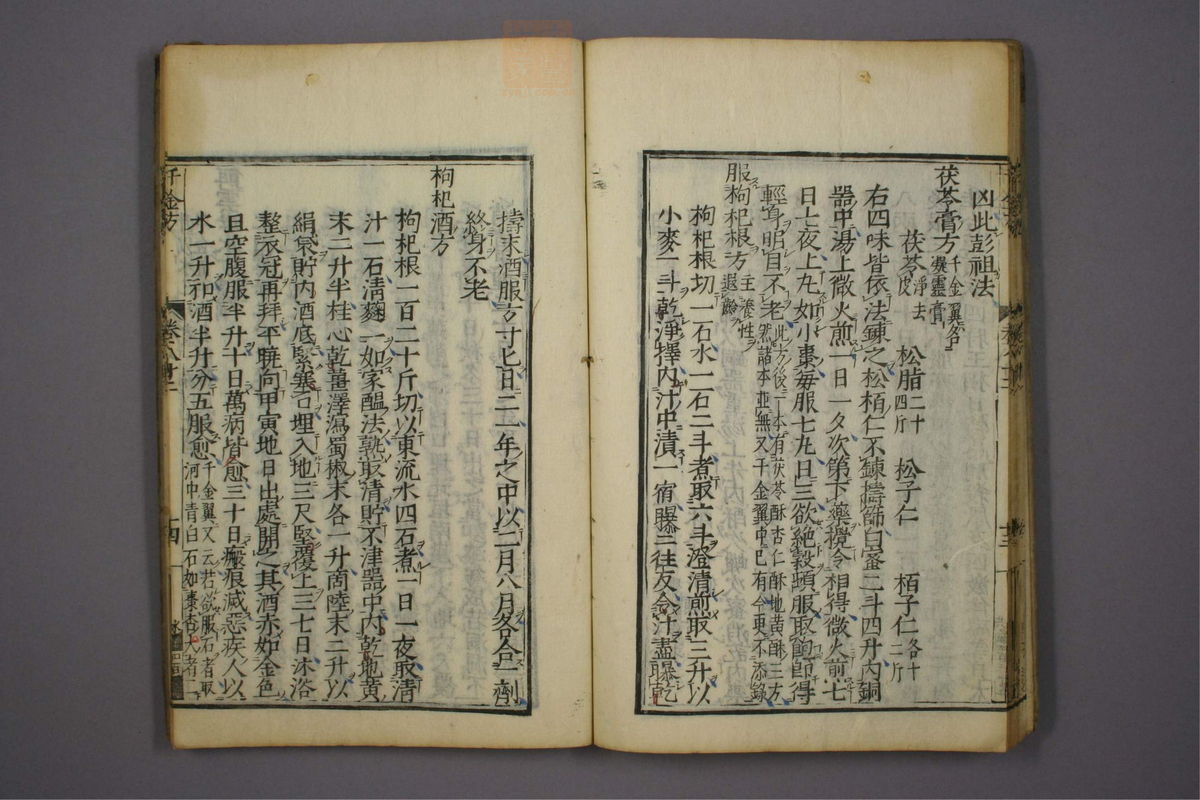 凶此彭祖法
茯苓膏方千金翼名凝靈膏
茯苓淨去皮 松脂二十四斤 松子仁 栢子仁各十二斤
右四味皆依法鍊之松栢仁不鍊擣篩白蜜二斗四升内銅
器中湯上微火煎一日一夕次第下藥攪令相得微火煎七
日七夜止丸如小棗每服七丸日三欲絕穀頓服取飽即得
輕身明目不老此方後一本有茯苓酥杏仁酥地黃酥三方然諸本並無又千金翼中已有今更不添錄
服枸杞根方主養性遐齡
枸杞根切一石水一石二斗煮取六斗澄清煎取三升以
小麥一斗乾淨擇内汁中漬一宿曝二往反令汁盡曝乾
擣末酒服方寸匕日二一年之中以二月八月各合一劑
終身不老
枸杞酒方
枸杞根一百二十斤切以東流水四石煮一日一夜取清
汁一石漬麴一如家醞法熟取清貯不津器中内乾地黃
末二升半桂心乾薑澤瀉蜀椒末各一升商陸末二升以
絹袋貯内酒底緊塞口埋入地三尺堅覆上三七日沐浴
整衣冠再拜平曉向甲寅地日出處開之其酒赤如金色
且空腹服半升十日萬病皆愈三十日瘢痕滅惡疾人以
水一升和酒半升分五服愈千金翼又云若欲服石者取河中青白石如棗杏大者二
千金方 卷八十二 十四